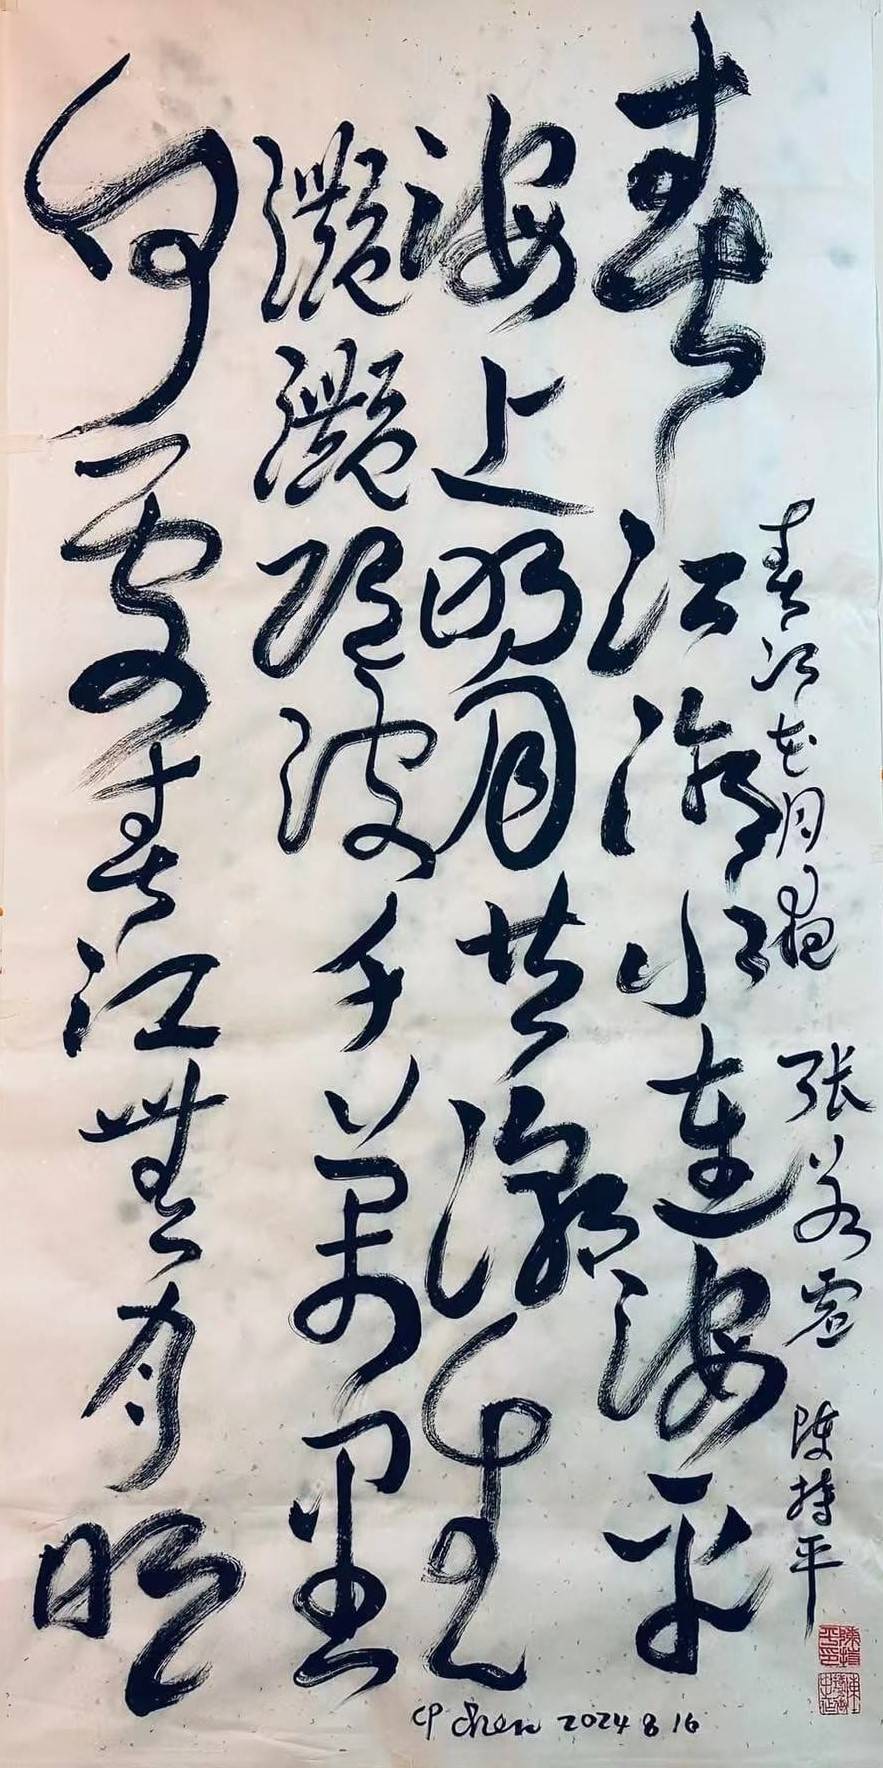 春江花月夜 张若虚 陈持平
春江潮水连海平
海上明月共潮生
灔灔随波千萬里
何處春江無月明
CP Chen 2024 8 16